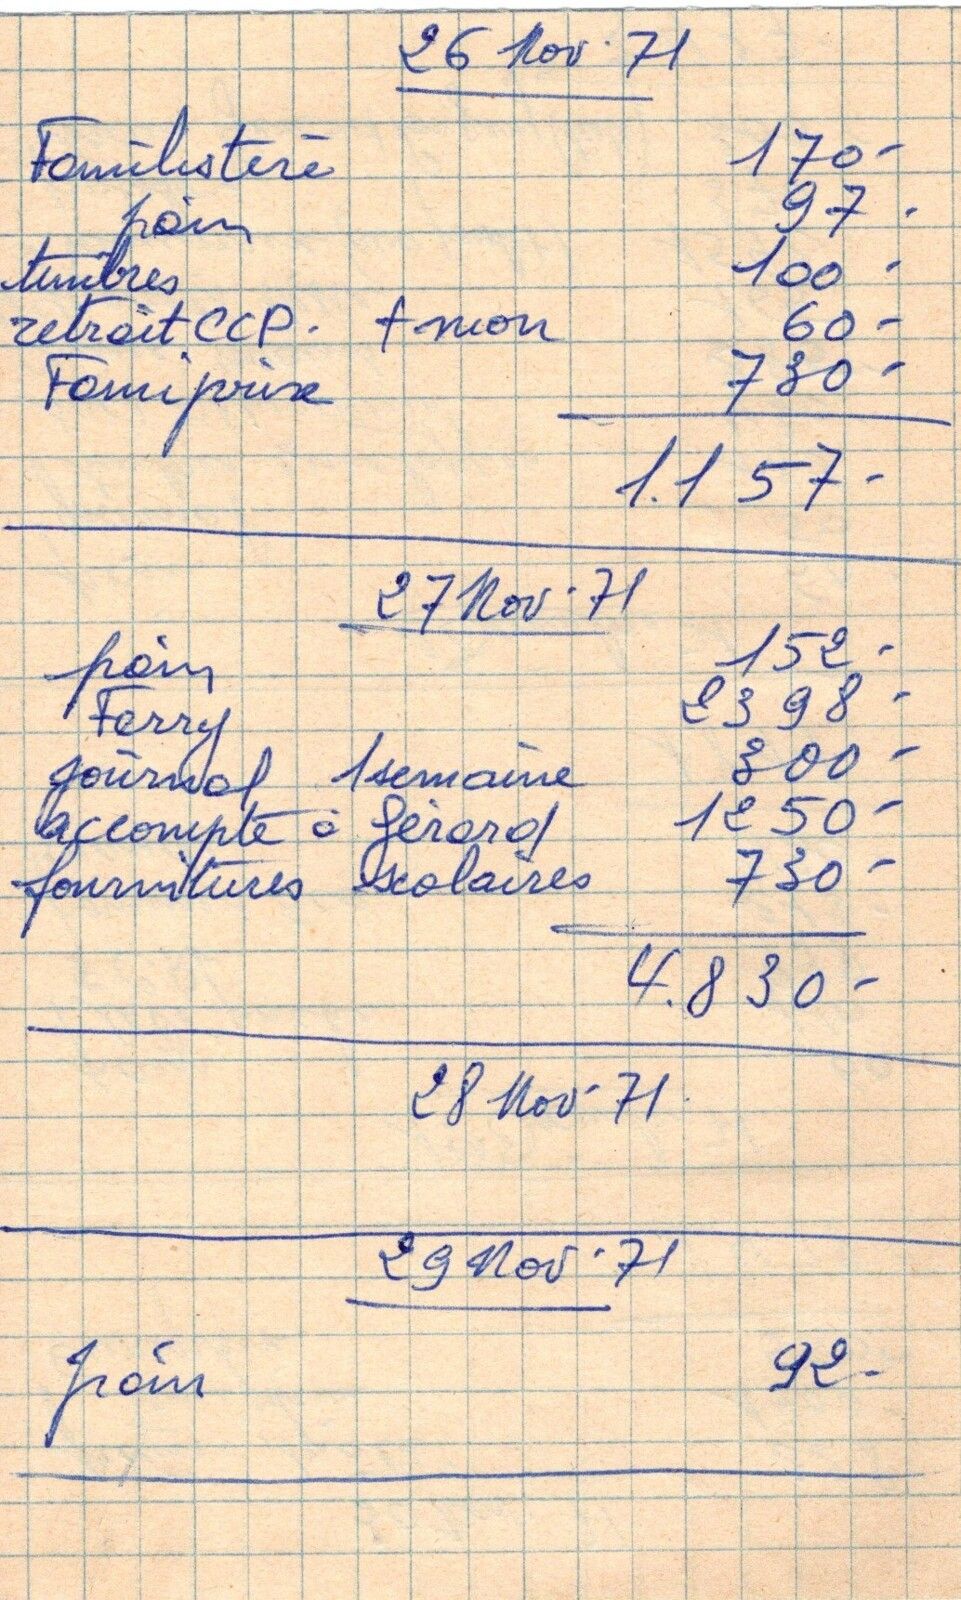 26 Nov. 71
Familistère 170-
pain 97.
timbres 100-
retrait CCP. + mon 60-
Familprix 730-
1.157-
27 Nov. 71
pain 152-
Ferry 2398-
journal 1 semaine 300-
accompte à Gérard 1250-
fournitures scolaires 730-
4.830-
28 Nov. 71
29 Nov. 71
pain 92-